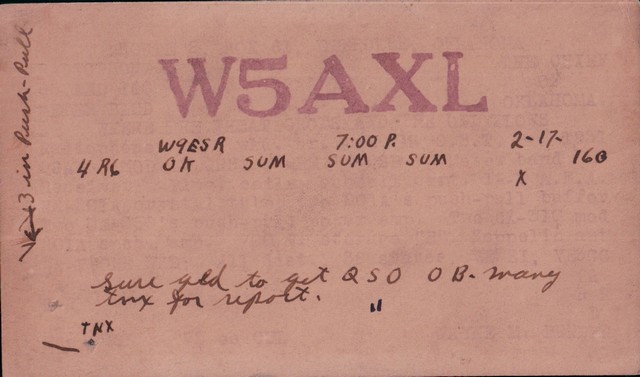 W5AXL
W9ESR 7:00 P. 2-17-
4 R6 OK SUM SUM SUM 160
X
Sure gld to get QSO OB- many
tnx for report. "
TNX
in Push-Pull